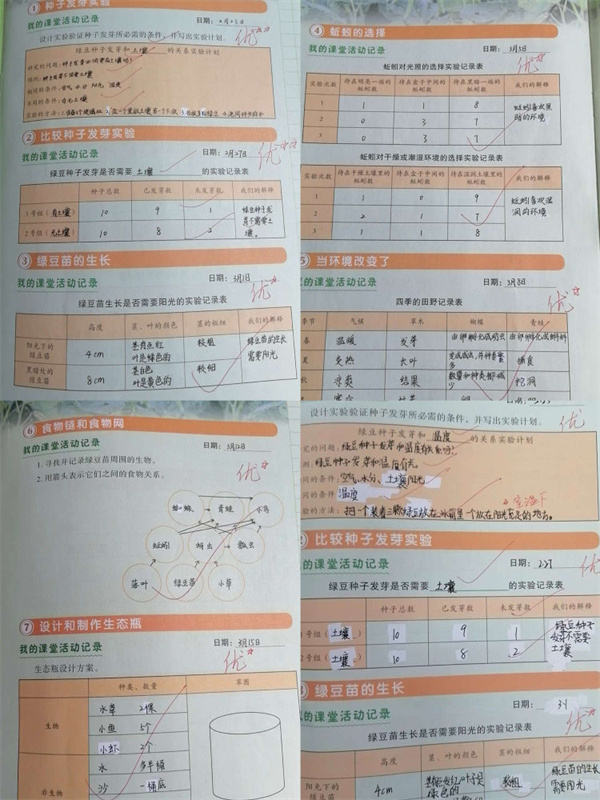 ① 种子发芽实验
我的课堂活动记录
日期:
设计实验验证种子发芽所必需的条件,并写出实验计划。
绿豆种子发芽和土壤的关系实验计划
② 比较种子发芽实验
我的课堂活动记录
日期: 2月27日
优
绿豆种子发芽是否需要 土壤 的实验记录表
种子总数 已发芽数 未发芽数 我们的解释
1号组(有土壤) 10 9 1
2号组(无土壤) 10 8 2
③ 绿豆苗的生长
我的课堂活动记录
日期: 3月1日
优
绿豆苗生长是否需要阳光的实验记录表
高度 茎、叶的颜色 茎的粗细 我们的解释
阳光下的绿豆苗 4cm 叶是绿色的 较粗 绿豆苗的生长需要阳光
黑暗处的绿豆苗 8cm 茎白色 叶是黄色的 较细
④ 蚯蚓的选择
我的课堂活动记录
日期: 3月5日
优
蚯蚓对光照的选择实验记录表
实验次数 待在明亮一端的蚯蚓数 待在盒子中间的蚯蚓数 待在黑暗一端的蚯蚓数 我们的解释
1 1 1 8 蚯蚓喜欢黑暗的环境
2 0 3 7
3 0 3 7
蚯蚓对干燥或潮湿环境的选择实验记录表
实验次数 待在干燥土壤里的蚯蚓数 待在盒子中间的蚯蚓数 待在湿润土壤里的蚯蚓数 我们的解释
1 1 0 9 蚯蚓喜欢湿润的环境
2 2 1 7
3 1 1 8
⑤ 当环境改变了
我的课堂活动记录
日期: 3月8日
优
四季的田野记录表
季节 气候 草木 蝴蝶 青蛙
春 温暖 发芽
夏 炎热 长叶 捕食
秋 凉爽 结果 挖洞
⑥ 食物链和食物网
我的课堂活动记录
日期: 3月12日
优
1. 寻找并记录绿豆苗周围的生物。
2. 用箭头表示它们之间的食物关系。
蜘蛛 青蛙 小鸟
蚯蚓 蚜虫 瓢虫
落叶 绿豆苗 小草
⑦ 设计和制作生态瓶
我的课堂活动记录
日期: 3月15日
优
生态瓶设计方案。
种类、数量 草图
生物 水草 2棵
小鱼 5个
小虾 3个
非生物 水 多半桶
沙 一铺底
设计实验验证种子发芽所必需的条件,并写出实验计划。
优
绿豆种子发芽和 温度 的关系实验计划
空气、水分、土壤阳光
温度
比较种子发芽实验
的课堂活动记录
日期: 2.27
优
绿豆种子发芽是否需要 土壤 的实验记录表
种子总数 已发芽数 未发芽数 我们的解释
号组(土壤) 10 9 1 绿豆种子发芽不需要土壤
号组(土壤) 10 8 2
绿豆苗的生长
我的课堂活动记录
日期: 3.1
优
绿豆苗生长是否需要阳光的实验记录表
高度 茎、叶的颜色 茎的粗细 我们的解释
阳光下的 4cm 绿色的 较粗 绿豆苗的生长需要阳光